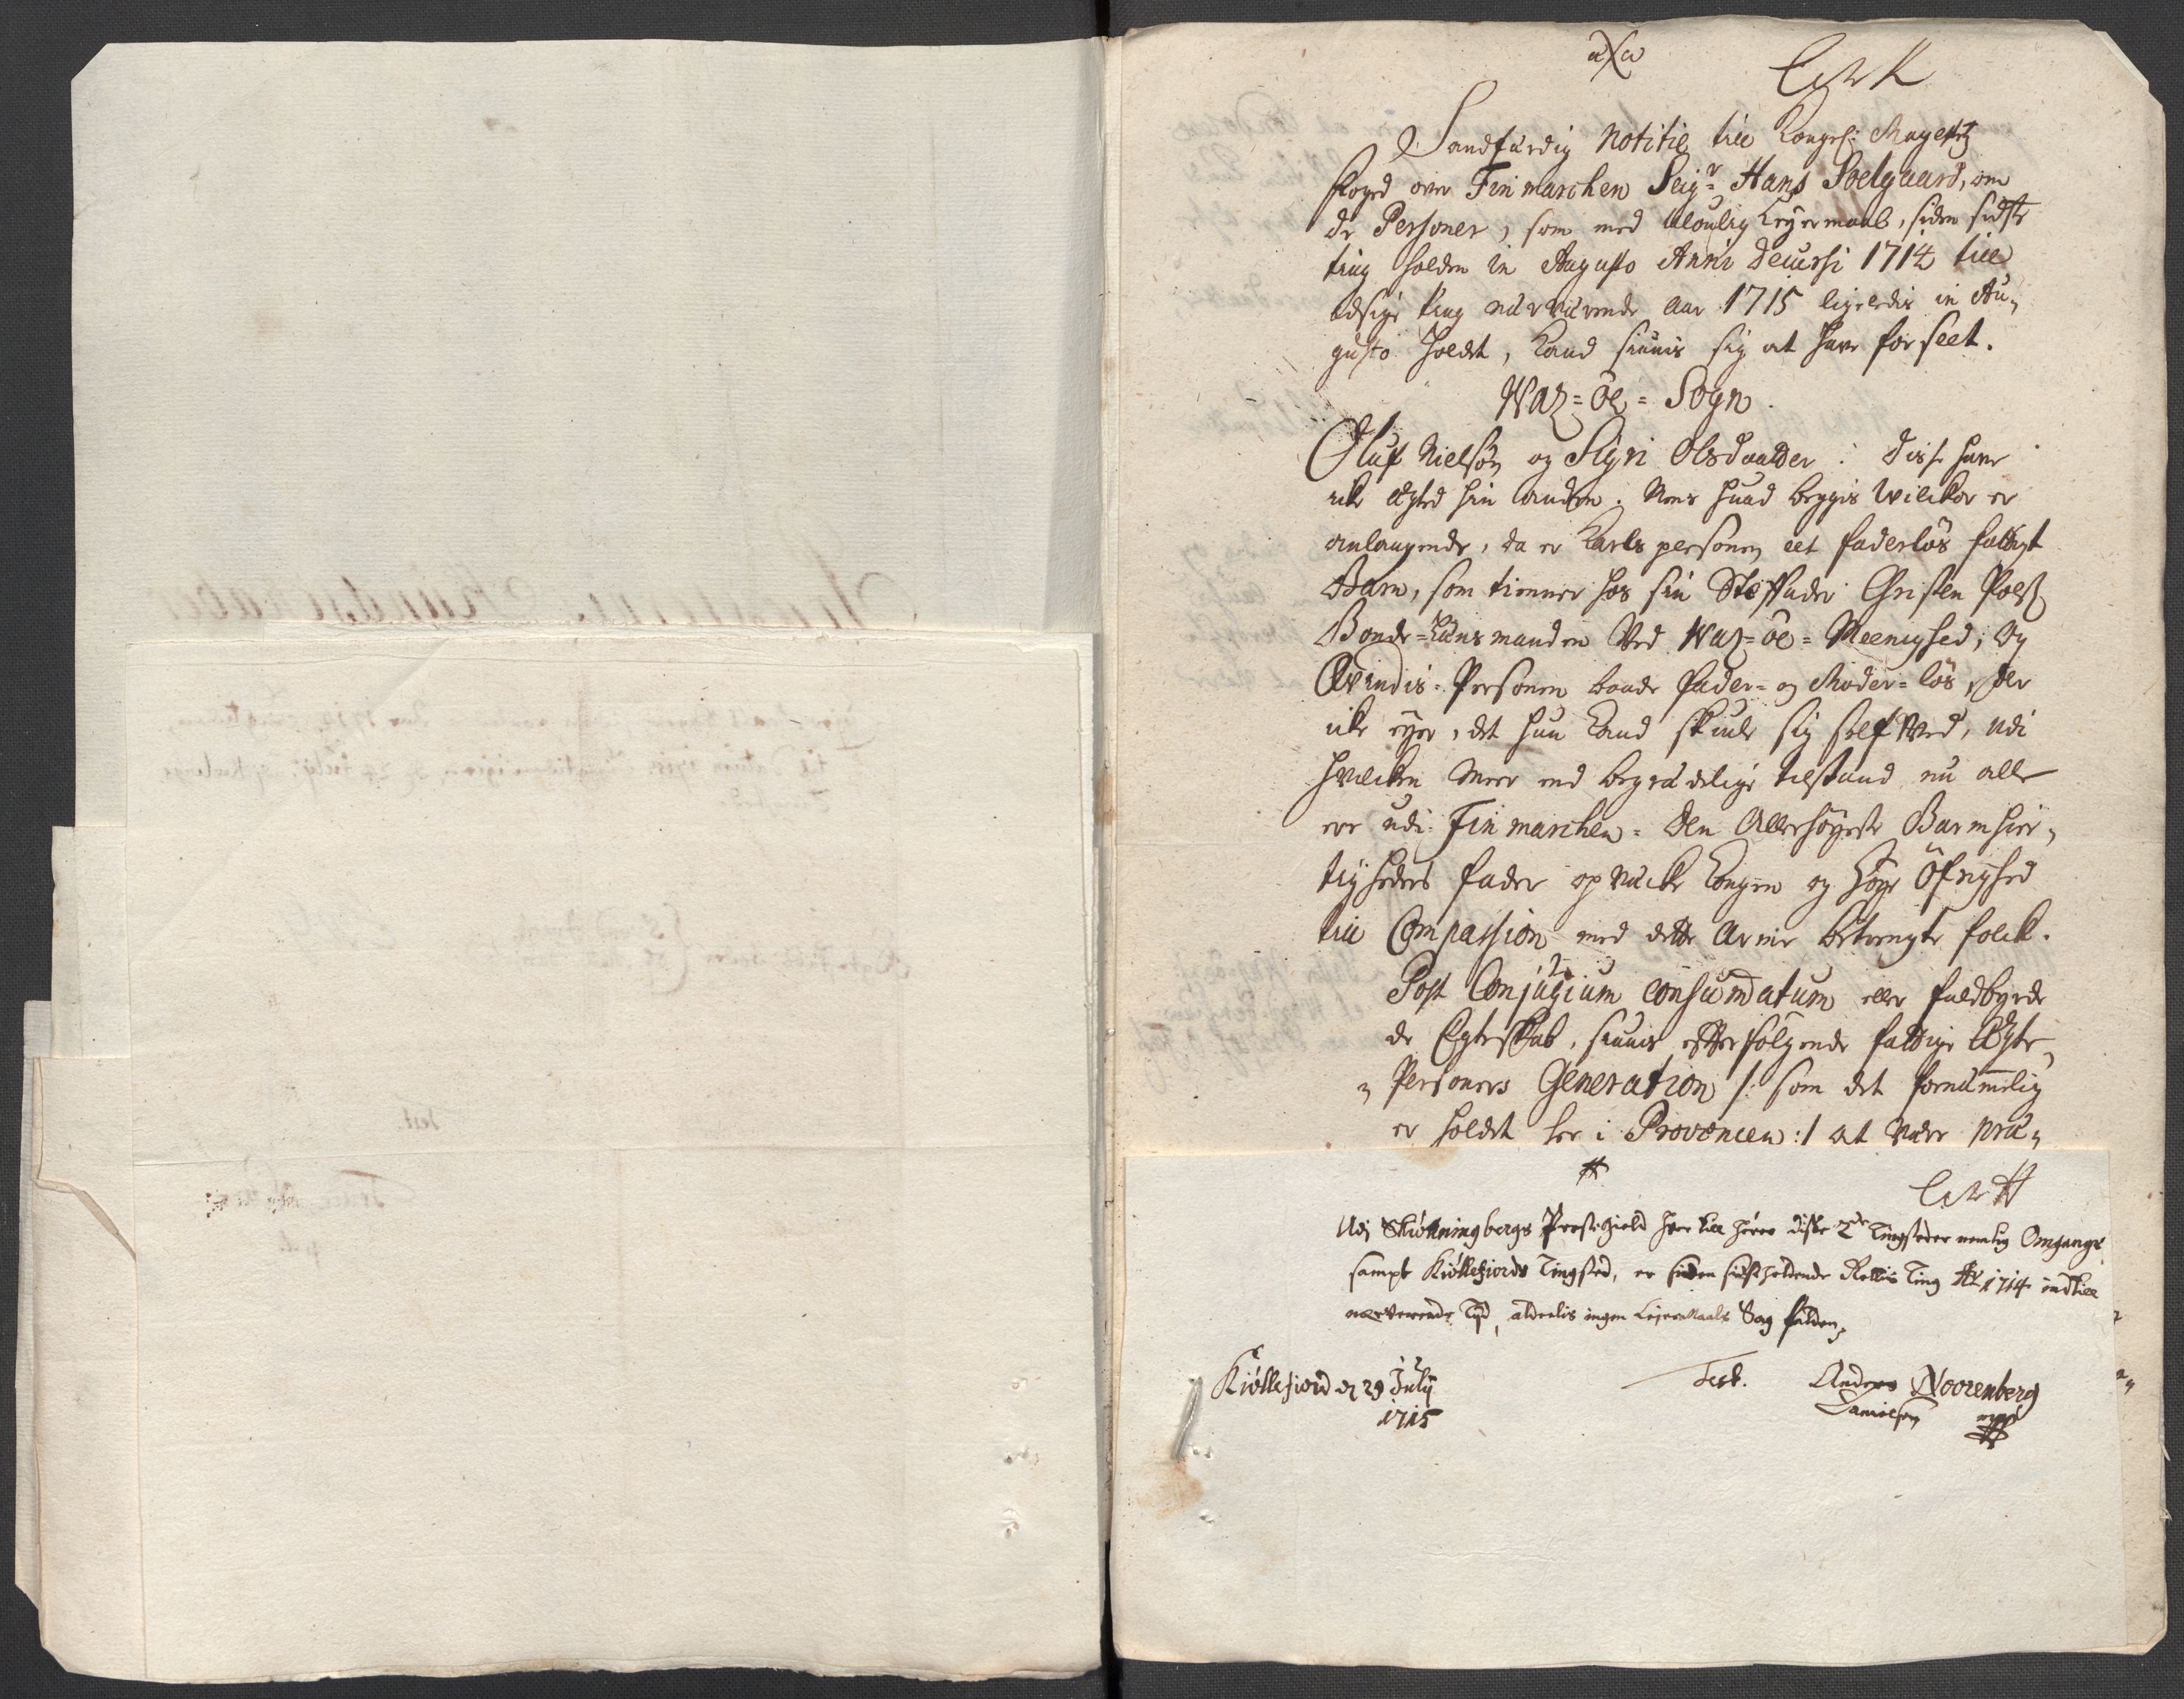 Litr K
Sandfærdig Notitie till Kongel: Mayestz
foged over Finmarchen Seigr Hans Soelgaard, om
de Personer, som med uloulig Leyermaal, siden sidste
ting holden in Augusto Anni decursi 1714 till
dette ting nærværende aar 1715 ligeledis in Au-
gusto holdet, kand siunis sig at have forseet.
Waz-öe-Sogn.
Oluf Nielsøn og Sigri Olsdaatter: disse have
icke ægted hin anden. Mens huad beggis Wilckor er
anlangende, da er Karls personen eet faderløs fattigt
Barn, som tienner hos sin Steffader Christen Poelss
Bonde-Lænsmanden ved Waz-öe-Meenighed; Og
Qvindis-Personen baade fader- og Moder-løs, der
icke eyer, det hun kand skiule sig self ved, udi
hvilcken meer end begrædelige tilstand nu alle
ere udi Finmarchen. Den Allerhøyeste Barmhier-
tigheders fader opvæcke kongen og høye Öfrighed
till Compassion med dette arme betrengte folck.
Post Conjugium consummatum eller fuldbyrde
de Egteskab, siunis efterfølgende fattige Ægte-
Personers Generation /: som det fornemmelig
er holdet her i Provincen :/ at være præ-
Litr H
Udi Skiøttningbergs Præstegield hvor till hörer disse 2de Tingsteder nemlig Omgangs
sampt Kiøllefiords Tingsted, er siden sidst holdende Rettis Ting Ao 1714 indtill
nærverende Tid, aldeelis ingen Leyermaals Sag falden,
Kiøllefiord d 29 July
1715
Test.
Anders Noorenberg
Danielsen